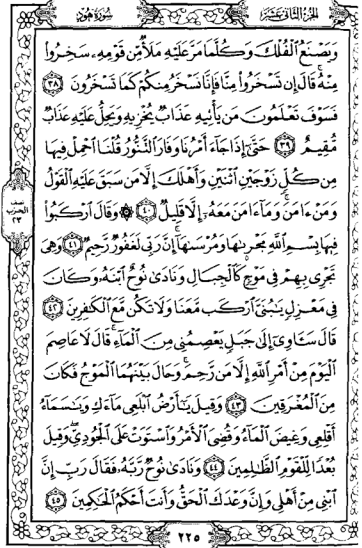 الجزء الثانى عشر
سورة هود
وَيَصْنَعُ ٱلْفُلْكَ وَكُلَّمَا مَرَّ عَلَيْهِ مَلَأٌ مِّن قَوْمِهِۦ سَخِرُوا۟
مِنْهُ ۚ قَالَ إِن تَسْخَرُوا۟ مِنَّا فَإِنَّا نَسْخَرُ مِنكُمْ كَمَا تَسْخَرُونَ ٣٨
فَسَوْفَ تَعْلَمُونَ مَن يَأْتِيهِ عَذَابٌ يُخْزِيهِ وَيَحِلُّ عَلَيْهِ عَذَابٌ
مُّقِيمٌ ٣٩ حَتَّىٰٓ إِذَا جَآءَ أَمْرُنَا وَفَارَ ٱلتَّنُّورُ قُلْنَا ٱحْمِلْ فِيهَا
مِن كُلٍّ زَوْجَيْنِ ٱثْنَيْنِ وَأَهْلَكَ إِلَّا مَن سَبَقَ عَلَيْهِ ٱلْقَوْلُ
وَمَنْ ءَامَنَ ۚ وَمَآ ءَامَنَ مَعَهُۥٓ إِلَّا قَلِيلٌ ٤٠ ۞ وَقَالَ ٱرْكَبُوا۟
فِيهَا بِسْمِ ٱللَّهِ مَجْر۪ىٰهَا وَمُرْسَىٰهَآ ۚ إِنَّ رَبِّى لَغَفُورٌ رَّحِيمٌ ٤١ وَهِىَ
تَجْرِى بِهِمْ فِى مَوْجٍ كَٱلْجِبَالِ وَنَادَىٰ نُوحٌ ٱبْنَهُۥ وَكَانَ
فِى مَعْزِلٍ يَٰبُنَىَّ ٱرْكَب مَّعَنَا وَلَا تَكُن مَّعَ ٱلْكَٰفِرِينَ ٤٢
قَالَ سَـَٔاوِىٓ إِلَىٰ جَبَلٍ يَعْصِمُنِى مِنَ ٱلْمَآءِ ۚ قَالَ لَا عَاصِمَ
ٱلْيَوْمَ مِنْ أَمْرِ ٱللَّهِ إِلَّا مَن رَّحِمَ ۚ وَحَالَ بَيْنَهُمَا ٱلْمَوْجُ فَكَانَ
مِنَ ٱلْمُغْرَقِينَ ٤٣ وَقِيلَ يَٰٓأَرْضُ ٱبْلَعِى مَآءَكِ وَيَٰسَمَآءُ
أَقْلِعِى وَغِيضَ ٱلْمَآءُ وَقُضِىَ ٱلْأَمْرُ وَٱسْتَوَتْ عَلَى ٱلْجُودِىِّ ۖ وَقِيلَ
بُعْدًا لِّلْقَوْمِ ٱلظَّٰلِمِينَ ٤٤ وَنَادَىٰ نُوحٌ رَّبَّهُۥ فَقَالَ رَبِّ إِنَّ
ٱبْنِى مِنْ أَهْلِى وَإِنَّ وَعْدَكَ ٱلْحَقُّ وَأَنتَ أَحْكَمُ ٱلْحَٰكِمِينَ ٤٥
نصف
الحزب
٢٣
٢٢٥